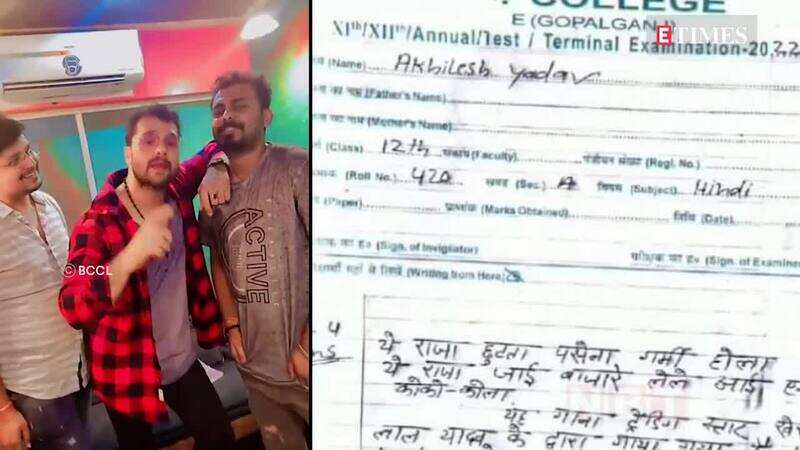 COLLEGE
E (GOPALGANJ)
ETIMES
XIth/XIIth/Annual/Test / Terminal Examination-20,22
(Name) Akhilesh yadav
का नाम (Father's Name)
का नाम (Mother's Name)
(Class) 12th संकाय (Faculty) पंजीयन संख्या (Regl. No.)
(Roll No.) 420 खण्ड (Sec.) A विषय (Subject) Hindi
(Paper) प्राप्तांक (Marks Obtained) तिथि (Date)
का ह० (Sign. of Invigilator)
का ह० (Sign. of Examiner
यहाँ से लिखें (Writing from Here)
© BCCL
ACTIVE
4
ये राजा छुटता पसेना गर्मी होला
Ans
ये राजा जाई बाजारे लेले आई
कोको-कोला
यह गाना ट्रेंडिंग स्टार
लाल यादव के द्वारा गाया गया